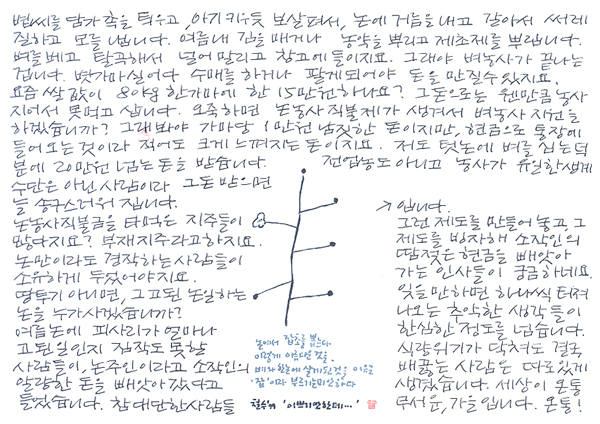 볍씨를 담가 촉을 틔우고, 아기 키우듯 보살펴서, 논에 거름을 내고 갈아서 써레
질하고 모를 냅니다. 여름내 김을 매거나 농약을 뿌리고 제초제를 뿌립니다.
벼를 베고 탈곡해서 널어 말리고 창고에 들이지요. 그래야 벼농사가 끝나는
겁니다. 볏가마 실어다 수매를 하거나 팔게 되어야 돈을 만질 수 있지요.
요즘 쌀값이 80kg 한가마에 한 15만원 하나요? 그 돈으로는 웬만큼 농사
지어서 못먹고 삽니다. 오죽하면 논농사직불제가 생겨서 벼농사 지원을
하겠습니까? 그래봐야 가마당 1만원 남짓한 돈이지만, 현금으로 통장에
들어오는 것이라 적어도 크게 느껴지는 돈이지요. 저도 텃논에 벼를 심는 덕
분에 20만원 넘는 돈을 받습니다. 전업농도 아니고 농사가 유일한 생계
수단은 아닌 사람이라 그 돈 받으면
늘 송구스러워집니다.
논농사직불금을 타먹은 지주들이
많다지요? 부재지주라고 하지요.
논만이라도 경작하는 사람들이
소유하게 두었어야지요.
땅투기 아니면, 그 고된 논일하는
논을 누가 사겠습니까?
여름논에 피사리가 얼마나
고된 일인지 짐작도 못할
사람들이, 논주인이라고 소작인의
알량한 돈을 빼앗아 갔다고
들었습니다. 참 대단한 사람들
→ 입니다.
그런 제도를 만들어 놓고, 그
제도를 빙자해 소작인의
땀젖은 현금을 빼앗아
가는 인사들이 궁금하네요.
잊을 만하면 하나씩 터져
나오는 추악한 생각들이
한심한 정도를 넘습니다.
식량위기가 닥쳐도 결국
배곯는 사람은 따로 있게
생겼습니다. 세상이 온통
무서운, 가을입니다. 온통!
논에서 잡초를 뽑는다.
이렇게 아름다운 것을.
벼와 한논에 살게 된 것을 이유로
'잡'이라 부르기 미안하다
철수 '이쁘기만한데…'